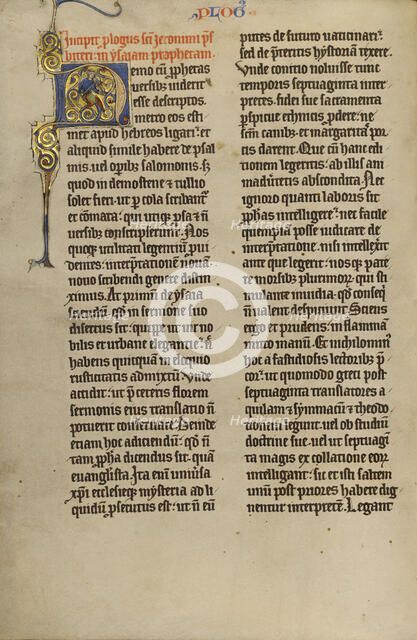 PLOG'
Incipit plogus sci Jeronimi ps
biteri in ysayam prophetam.
Nemo cū prophetas
versibus viderit
esse descriptos.
metro eos esti
met apud hebreos ligari: et
aliquid simile habere de psal
mis. vel opibus salomonis. Sz
quod in demostene et tullio
solet fieri ut p cola scribantᷣ
et cōmata. qui utiqz psa et nō
versibus conscripserunt. Nos
quoqz utilitati legentiū pui
dentes. interpretationē nouā
nouo scribendi genere distin
ximus. Ac primū de ysaia
sciendū qd in sermone suo
disertus sit: quippe ut vir no
bilis et urbane elegantie: nec
habens quicquam in eloquio
rusticitatis admixtū. Vnde
accidit. ut p ceteris florem
sermonis eius translatio nō
potuerit conseruare. Deinde
etiam hoc adiciendū. qd nō
tam ppha dicendus sit. quā
euangelista. Ita enī uniūsa
xpi ecclesieqz mysteria ad li
quidū psecutus est: ut nō eū
putes de futuro vaticinari:
sed de pteritis hystoriam texere.
Vnde conicio noluisse tunc
temporis septuaginta inter
pretes. fidei sue sacramenta
pspicue ethnicis pdere: ne
scm canibus et margaritas por
cis darent. Que cū hanc edi
tionem legeritis: ab illis ani
maduertetis abscondita. Nec
ignoro quanti laboris sit
pphas intelligere: nec facile
quempiā posse iudicare de
interptatione. nisi intellexit
ante que legerit: nosqz pate
re morsibus plurimorum. qui sti
mulante inuidia. qd consequi
nō valent despiciunt. Sciens
ergo et prudens. in flammā
mitto manū. Et nichilomiᷣ
hoc a fastidiosis lectoribus p
cor: ut quomodo greci post
septuaginta translatores a
quilam et symmacū et theodo
tionem legunt. vel ob studiū
doctrine sue. vel ut septuagī
ta magis ex collatione eorum
intelligant: sic et isti saltem
unū post priores habere dig
nentur interpretē. Legant
Heritage
Heritage
Heritage
Heritage
Heritage
Heritage